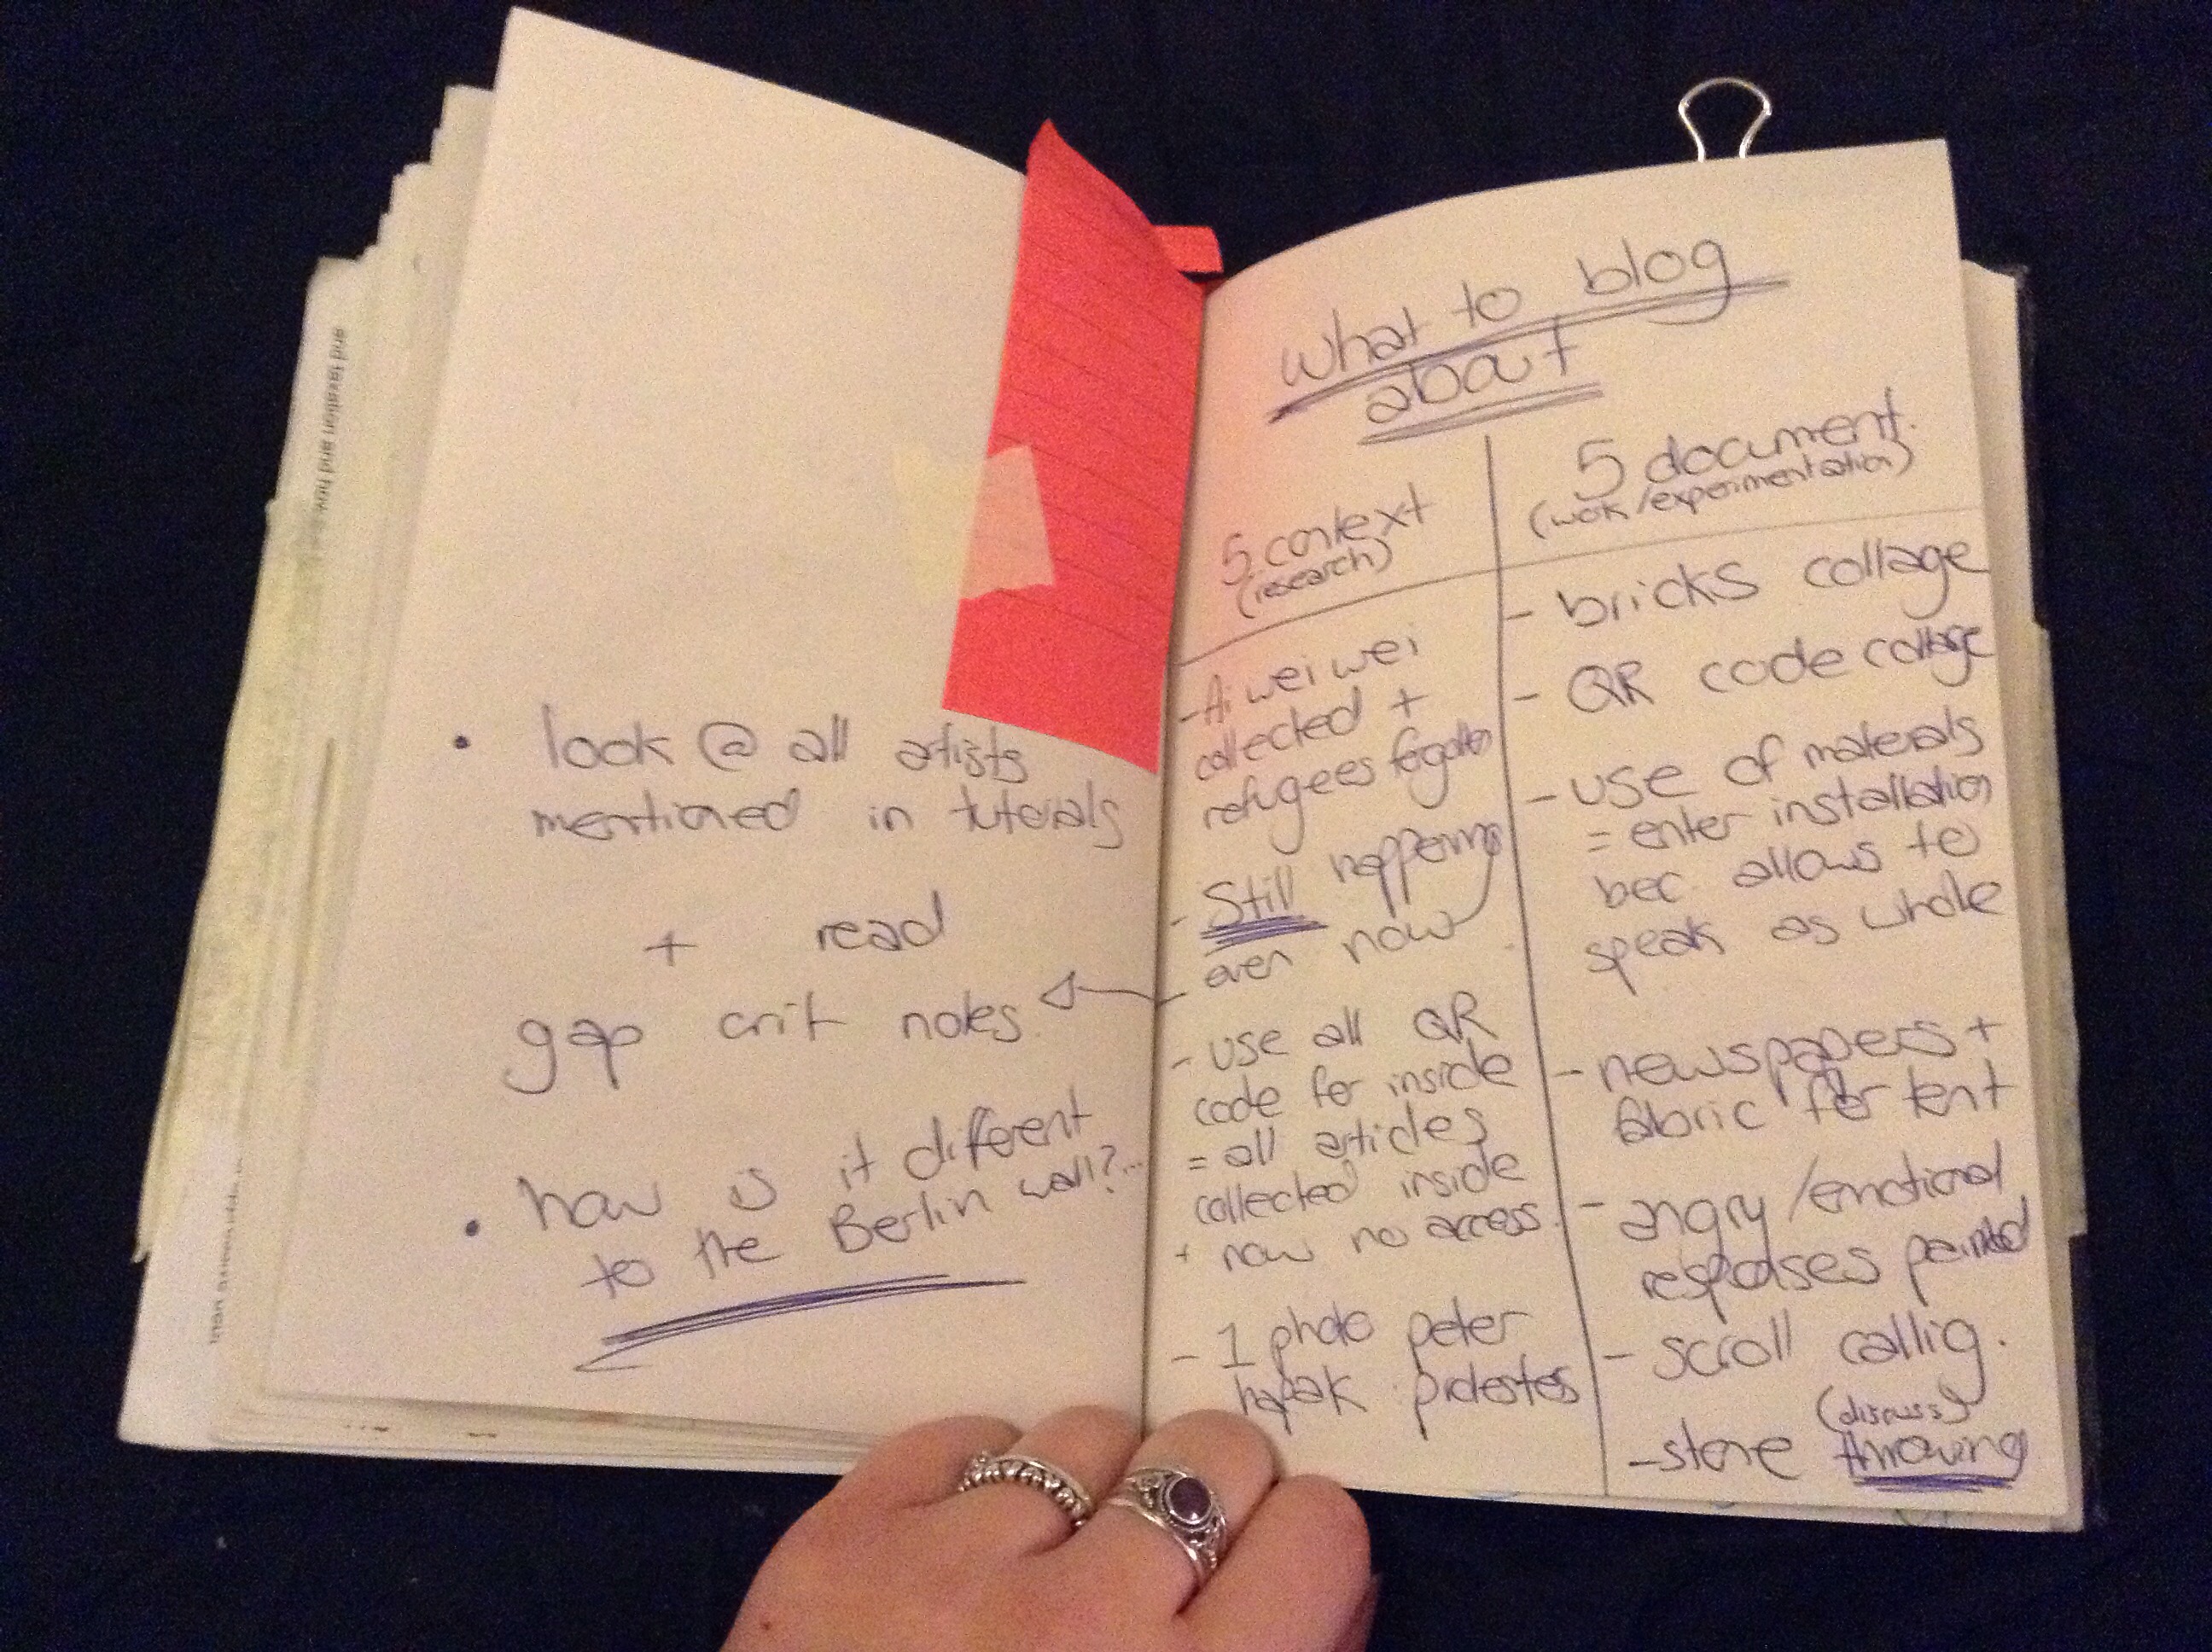 look @ all artists
mentioned in tutorials
+ read
gap crit notes
how is it different
to the Berlin wall?...
what to blog
about
5 context
(research)
- Ai wei wei
collected +
refugees forgotten
- Still happening
even now
-
- use all QR
code for inside
= all articles
collected inside
+ now no access.
- 1 photo peter
hapak protestes
5 document.
(work/experimentation)
- bricks collage
- QR code collage
- use of materials
= enter installation
bec. allows to
speak as whole
- newspapers +
fabric for tent
- angry/emotional
responses painted
- scroll callig.
(discuss)
- stone throwing
and taxation and how